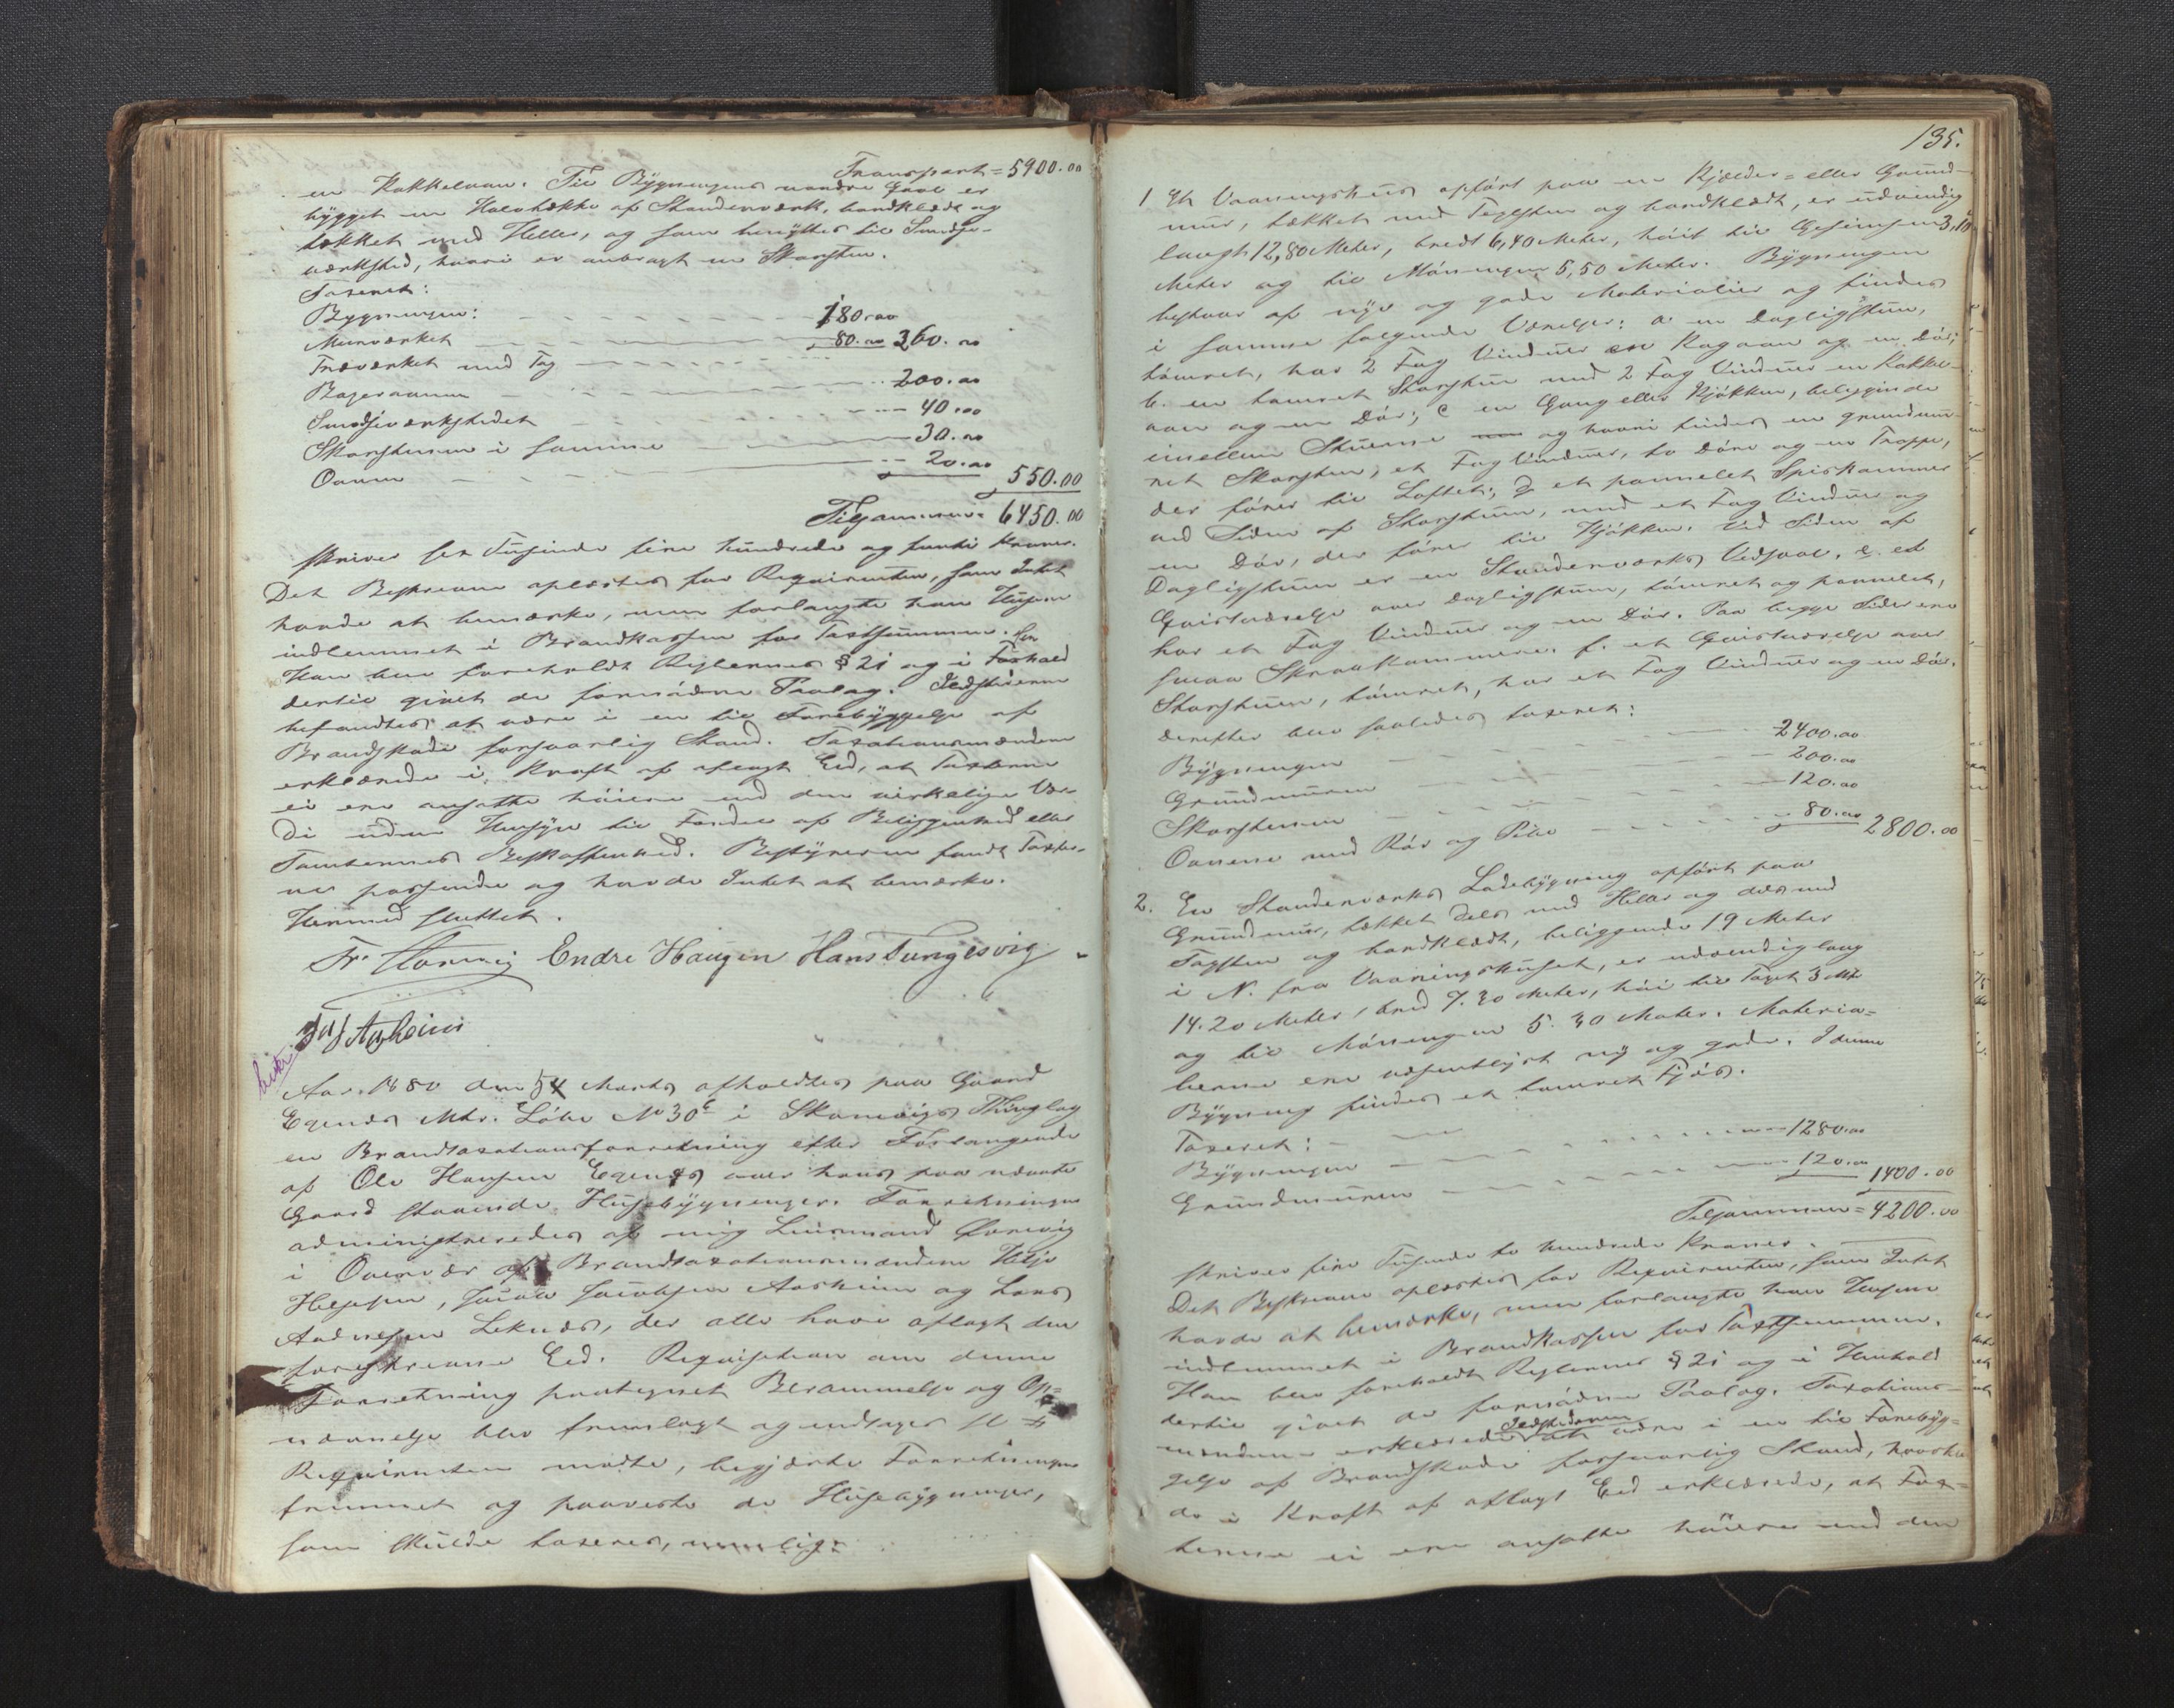 Transport = 5900.00
en Kakkelovn. Til Bygningens nordre Gavl er
bygget en Halvtække af Standerværk, bordklædt og
tækket med Heller, og som benyttes til Smedje-
værksted, hvori er anbragt en Skorsten.
Taxeret:
Bygningen:
Murværket 180.00
Træværket med Tag 80.00 260.00
Bagerovnen 200.00
Smedjeværkstedet 40.00
Skorstenen i samme 30.00
Ovnen 20.00
550.00
Tilsammen = 6450.00
skriver sex Tusinde fire hundrede og femti Kroner.
Det Beskrevne oplæstes for Requirenten, som Intet
havde at bemærke, men forlangte han Husene
indlemmet i Brandkassen for Taxtsummen.
Han blev foreholdt Reglernes § 21 og i Henhold
dertil givet de fornødne Paalæg. Ildstederne
befandtes at være i en til Forebyggelse af
Brandskade forsvarlig Stand. Taxationsmændene
erklærede i Kraft af aflagt Eed, at Taxterne
ei ere ansatte høiere end den virkelige Vær-
di uden Hensyn til Fordel af Beliggenhed eller
Tomternes Beskaffenhed. Bestyreren fandt Taxter-
ne passende og havde Intet at bemærke.
Hermed sluttet.
Fr. Horneig Endre Haugen Hans Tungesvig
Aar 1880 den 5 Marts afholdtes paa Gaard
Egenes Mtr. Løbe No 30 i Skonevigs Thinglag
en Brandtaxationsforretning efter Forlangende
af Ole Hansen Egenes over hans paa nævnte
Gaard staaende Husebygninger. Forretningen
administreredes af mig Lensmand
i Overvær af Brandtaxationsmændene Helje
Heljesen, Jacob Jacobsen Aasheim og Lars
Aadnesen Leknes, der alle have aflagt den
foreskrevne Eed. Requisition om denne
Forretning paategnet Berammelse og Op-
nævnelse blev fremlagt og indtages
Requirenten mødte, begjærte Forretningen
fremmet og paaviste de Husebygninger,
som skulde taxeres, nemlig:
135.
1 Et Vaaningshus opført paa en Kjælder- eller Grund-
mur, tækket med Teglsten og bordklædt, er udvendig
langt 12,80 Meter, bredt 6,40 Meter, høit til Gesimsen 3,10
Meter og til Mønningen 5,50 Meter. Bygningen
bestaar af nye og gode Materialier og findes
i samme følgende Værelser: a en Dagligstue,
tømret, har 2 Fag Vinduer en Kogovn og en Dør;
b. en tømret Storstue med 2 Fag Vinduer en Kakkel-
ovn og en Dør; c en Gang eller Kjøkken, beliggende
imellem Stuerne og hvori findes en grundmu-
ret Skorsten, et Fag Vinduer, to Døre og en Trappe,
der fører til Loftet; d et pannelet Spiskammer
ved Siden af Storstuen, med et Fag Vinduer og
en Dør, der fører til Kjøkken. Ved Siden af
Dagligstuen er en Standerværks Vedsval. e. et
Qvistværelse over Dagligstuen, tømret og pannelet,
har et Fag Vinduer og en Dør. Paa begge Sider ere
smaa Skraakammere. f. et Qvistværelse over
Storstuen, tømret, har et Fag Vinduer og en Dør.
derefter blev saaledes taxeret:
Bygningen 2400.00
Grundmuren 200.00
Skorstenen 120.00
Ovnene med Rør og Pibe 80.00 2800.00
2. En Standerværks Ladebygning opført paa
Grundmur, tækket dels med Heller og dels med
Teglsten og bordklædt, beliggende 19 Meter
i N. fra Vaaningshuset, er udvendig lang
14.20 Meter, bred 7.30 Meter, høi til Taget 3 Mtr
og til Mønningen 5.40 Meter. Materia-
lierne ere væsentligst ny og gode. I denne
Bygning findes et tømret Fjøs.
Taxeret:
Bygningen 1280.00
Grundmuren 120.00 1400.00
Tilsammen = 4200.00
skriver fire Tusinde to hundrede Kroner.
Det Beskrevne oplæstes for Requirenten, som Intet
havde at bemærke, men forlangte han Husene
indlemmet i Brandkassen for Taxtsummen.
Han blev foreholdt Reglernes § 21 og i Henhold
dertil givet de fornødne Paalæg. Taxations-
mændene erklærede Ildstederne at være i en til Forebyg-
gelse af Brandskade forsvarlig Stand, hvorhos
de i Kraft af aflagt Eed erklærede, at Tax-
terne ei ere ansatte høiere end den